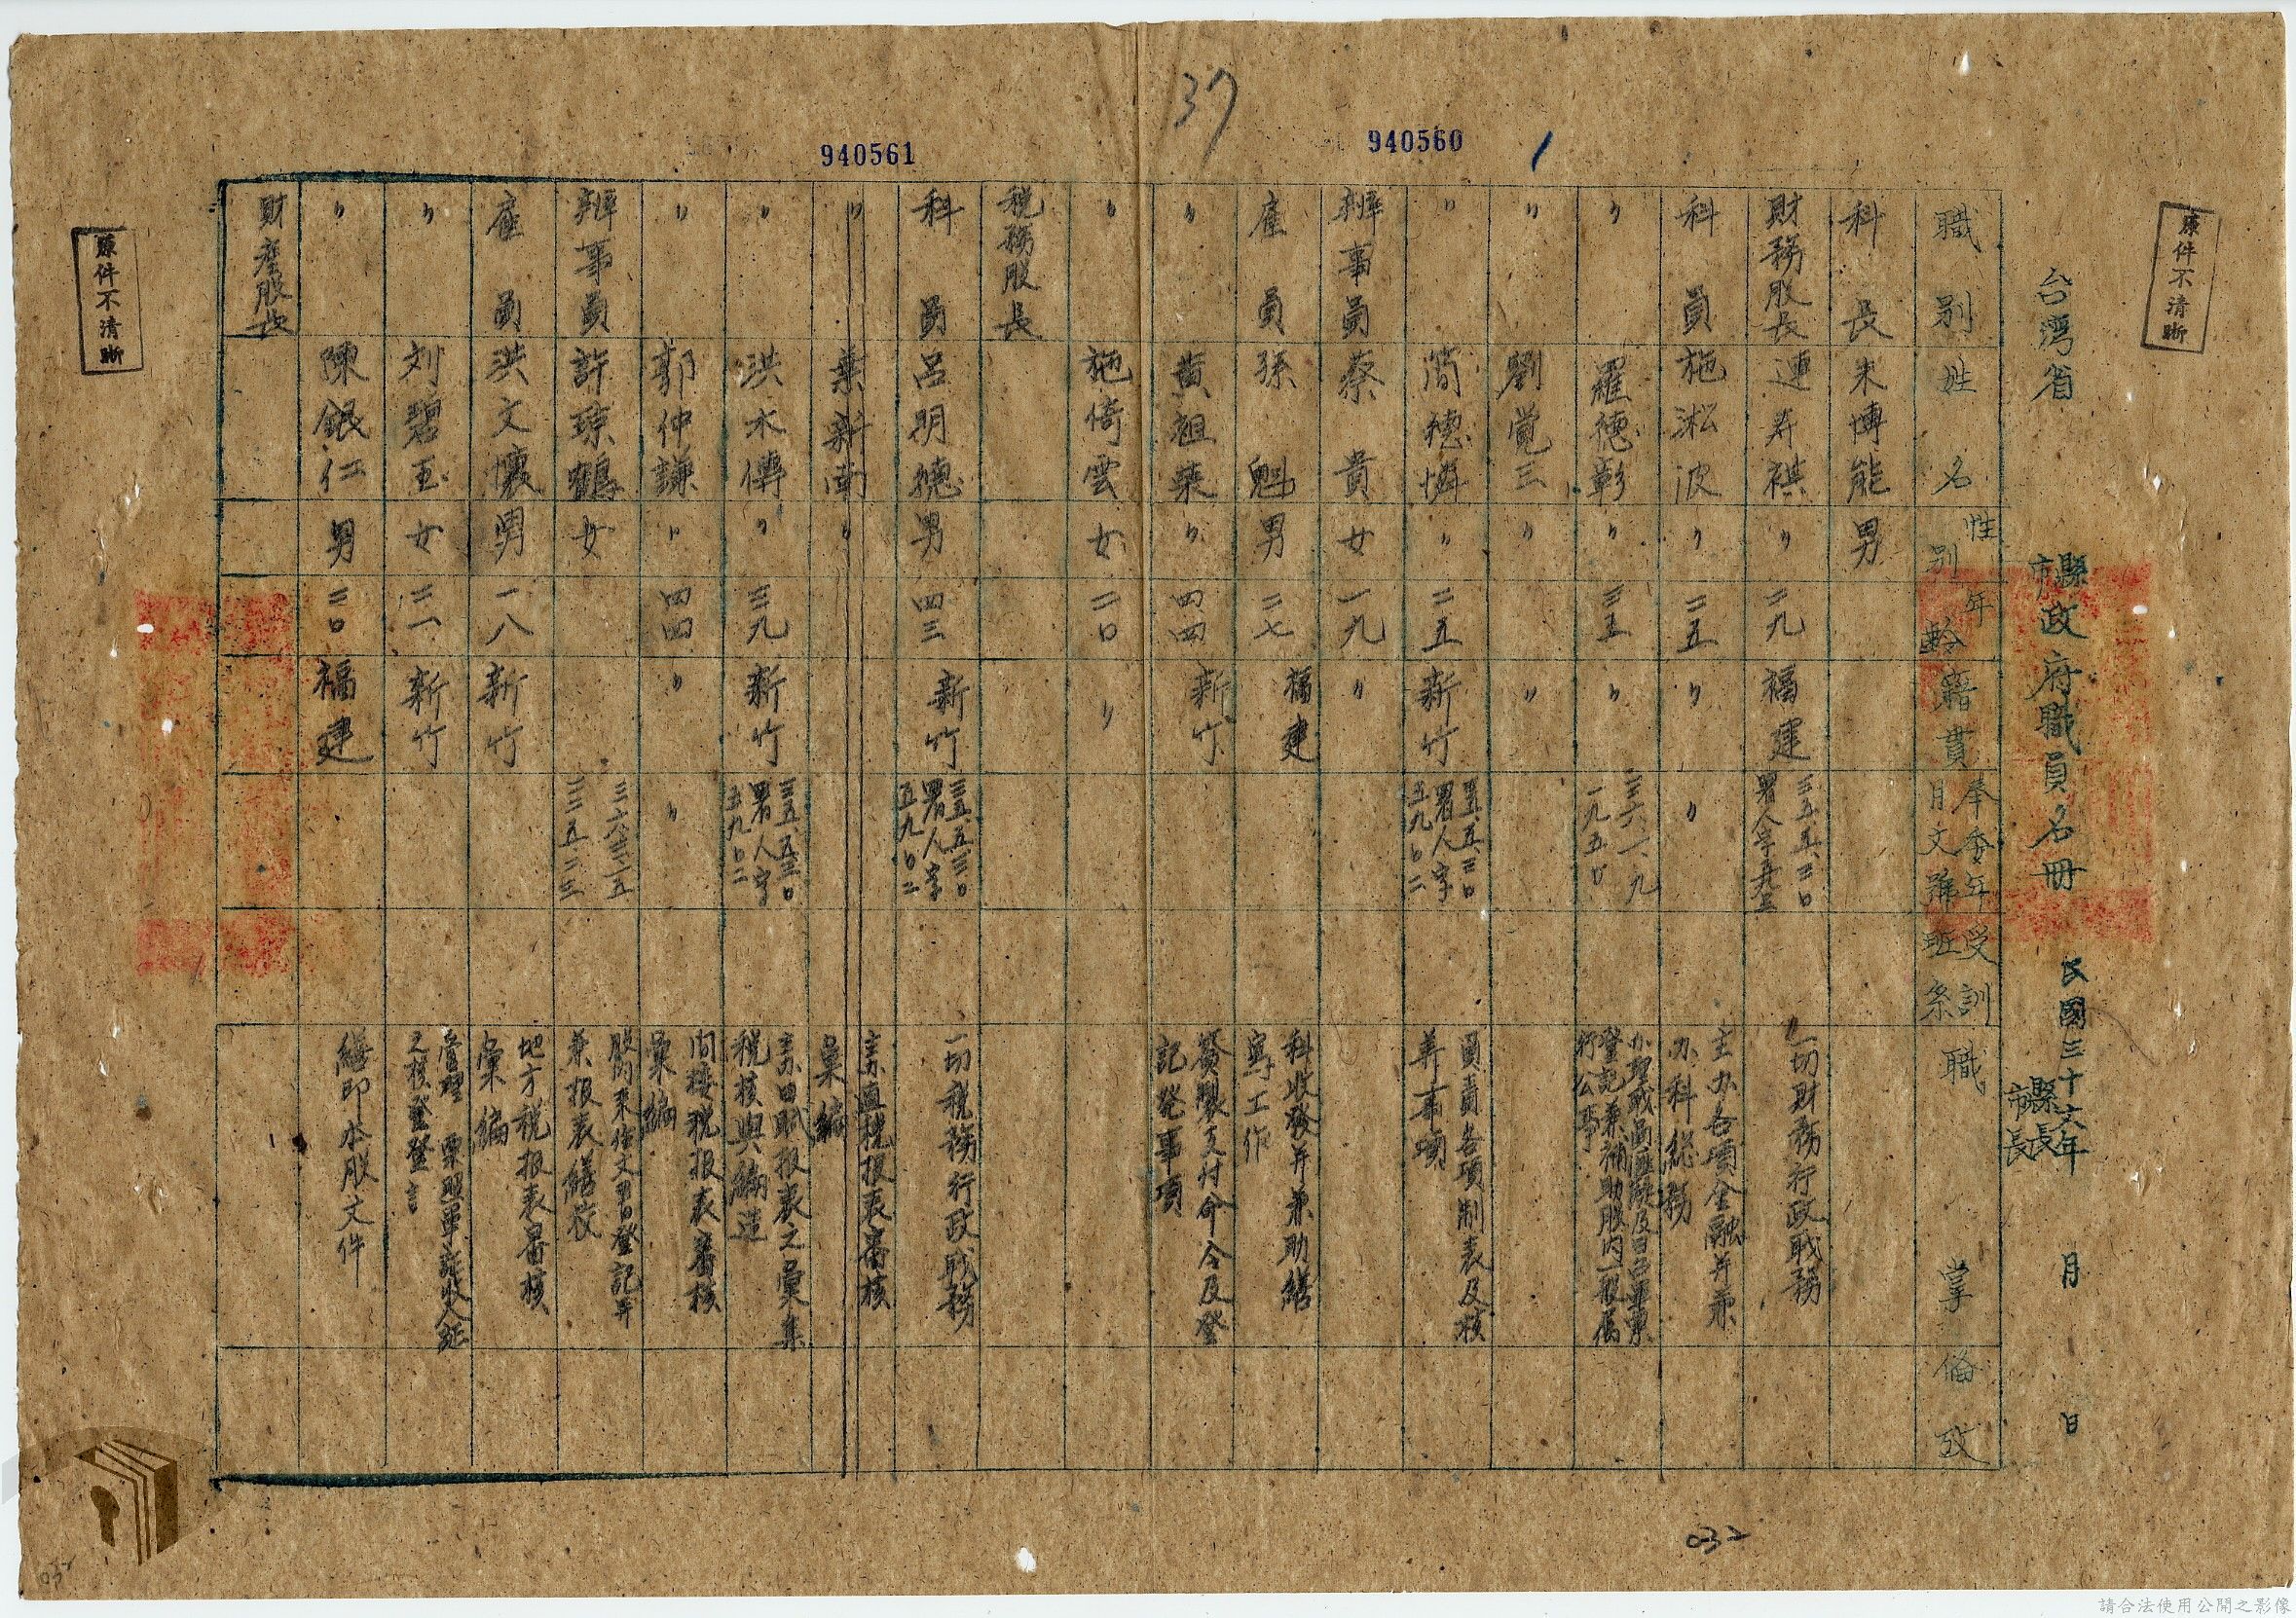 37
940560
940561
原件不清晰
原件不清晰
台湾省 縣市政府職員名冊 民國三十六年 月 日
縣長
市長
職別 姓名 性別 年齡 籍貫 奉委年月日文號 受訓班系 職掌 俻攷
科長 朱博能 男
財務股長 連寿祺 〃 二九 福建 三五、五、三〇 署人字 一切財務行政職務
科員 施淞波 〃 二五 〃 〃 主办各項金融并兼办科総務
〃 羅德彰 〃 三五 〃 三六、一、九 一九五〇 登記兼補助股内一般属行公事
〃 劉覚三 〃 〃
〃 簡德憐 〃 二五 新竹 三五、五、三〇 署人字五九〇二 員責各項制表及核算事項
辦事員 蔡貴 女 一九 〃
雇員 孫魁 男 二七 福建 科收發并兼助繕寫工作
〃 黄祖業 〃 四四 新竹 簽製支付命令及登記発事項
〃 施倚雲 女 二〇 〃
税務股長
科員 呂明德 男 四三 新竹 三五、五、三〇 署人字五九〇二 一切税務行政職務
〃 葉新南 〃 主办直税报表審核彙編
〃 洪木傳 〃 三九 新竹 三五、五、三〇 署人字五九〇二 主办田賦报表之彙集税核與編造
〃 郭仲謙 〃 四四 〃 〃 间接税报表審核彙編
辦事員 許琼鶴 女 三六、三、二五 三二五二三 股内来往文書登記并兼报表繕校
雇員 洪文懷 男 一八 新竹 地方税报表審核彙編
〃 刘碧玉 女 二一 新竹 管理 票照單
〃 陳銀仁 男 二〇 福建 繕印本股文件
財産股長
032
032
請合法使用公開之影像